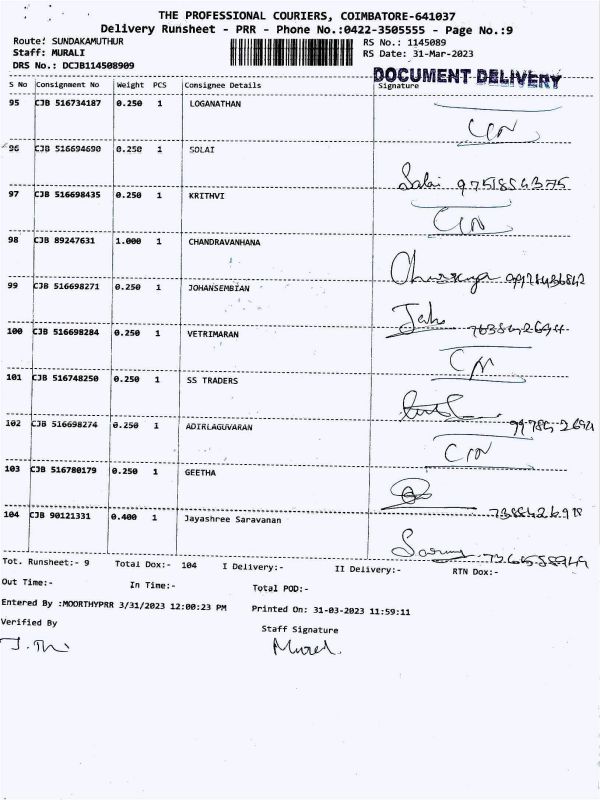 THE PROFESSIONAL COURIERS, COIMBATORE-641037
Delivery Runsheet - PRR - Phone No.:0422-3505555 - Page No.:9
Route: SUNDAKAMUTHUR
RS No.: 1145089
Staff: MURALI
RS Date: 31-Mar-2023
DRS No.: DCJB114508909
DOCUMENT DELIVERY
S No Consignment No Weight PCS Consignee Details Signature
95 CJB 516734187 0.250 1 LOGANATHAN
96 CJB 516694690 0.250 1 SOLAI
Salai 9751854375
97 CJB 516698435 0.250 1 KRITHVI
98 CJB 89247631 1.000 1 CHANDRAVANHANA
99 CJB 516698271 0.250 1 JOHANSEMBIAN
100 CJB 516698284 0.250 1 VETRIMARAN
101 CJB 516748250 0.250 1 SS TRADERS
102 CJB 516698274 0.250 1 ADIRLAGUVARAN
103 CJB 516780179 0.250 1 GEETHA
104 CJB 90121331 0.400 1 Jayashree Saravanan
Tot. Runsheet:- 9 Total Dox:- 104 I Delivery:- II Delivery:- RTN Dox:-
Out Time:- In Time:- Total POD:-
Entered By :MOORTHYPRR 3/31/2023 12:00:23 PM Printed On: 31-03-2023 11:59:11
Verified By Staff Signature